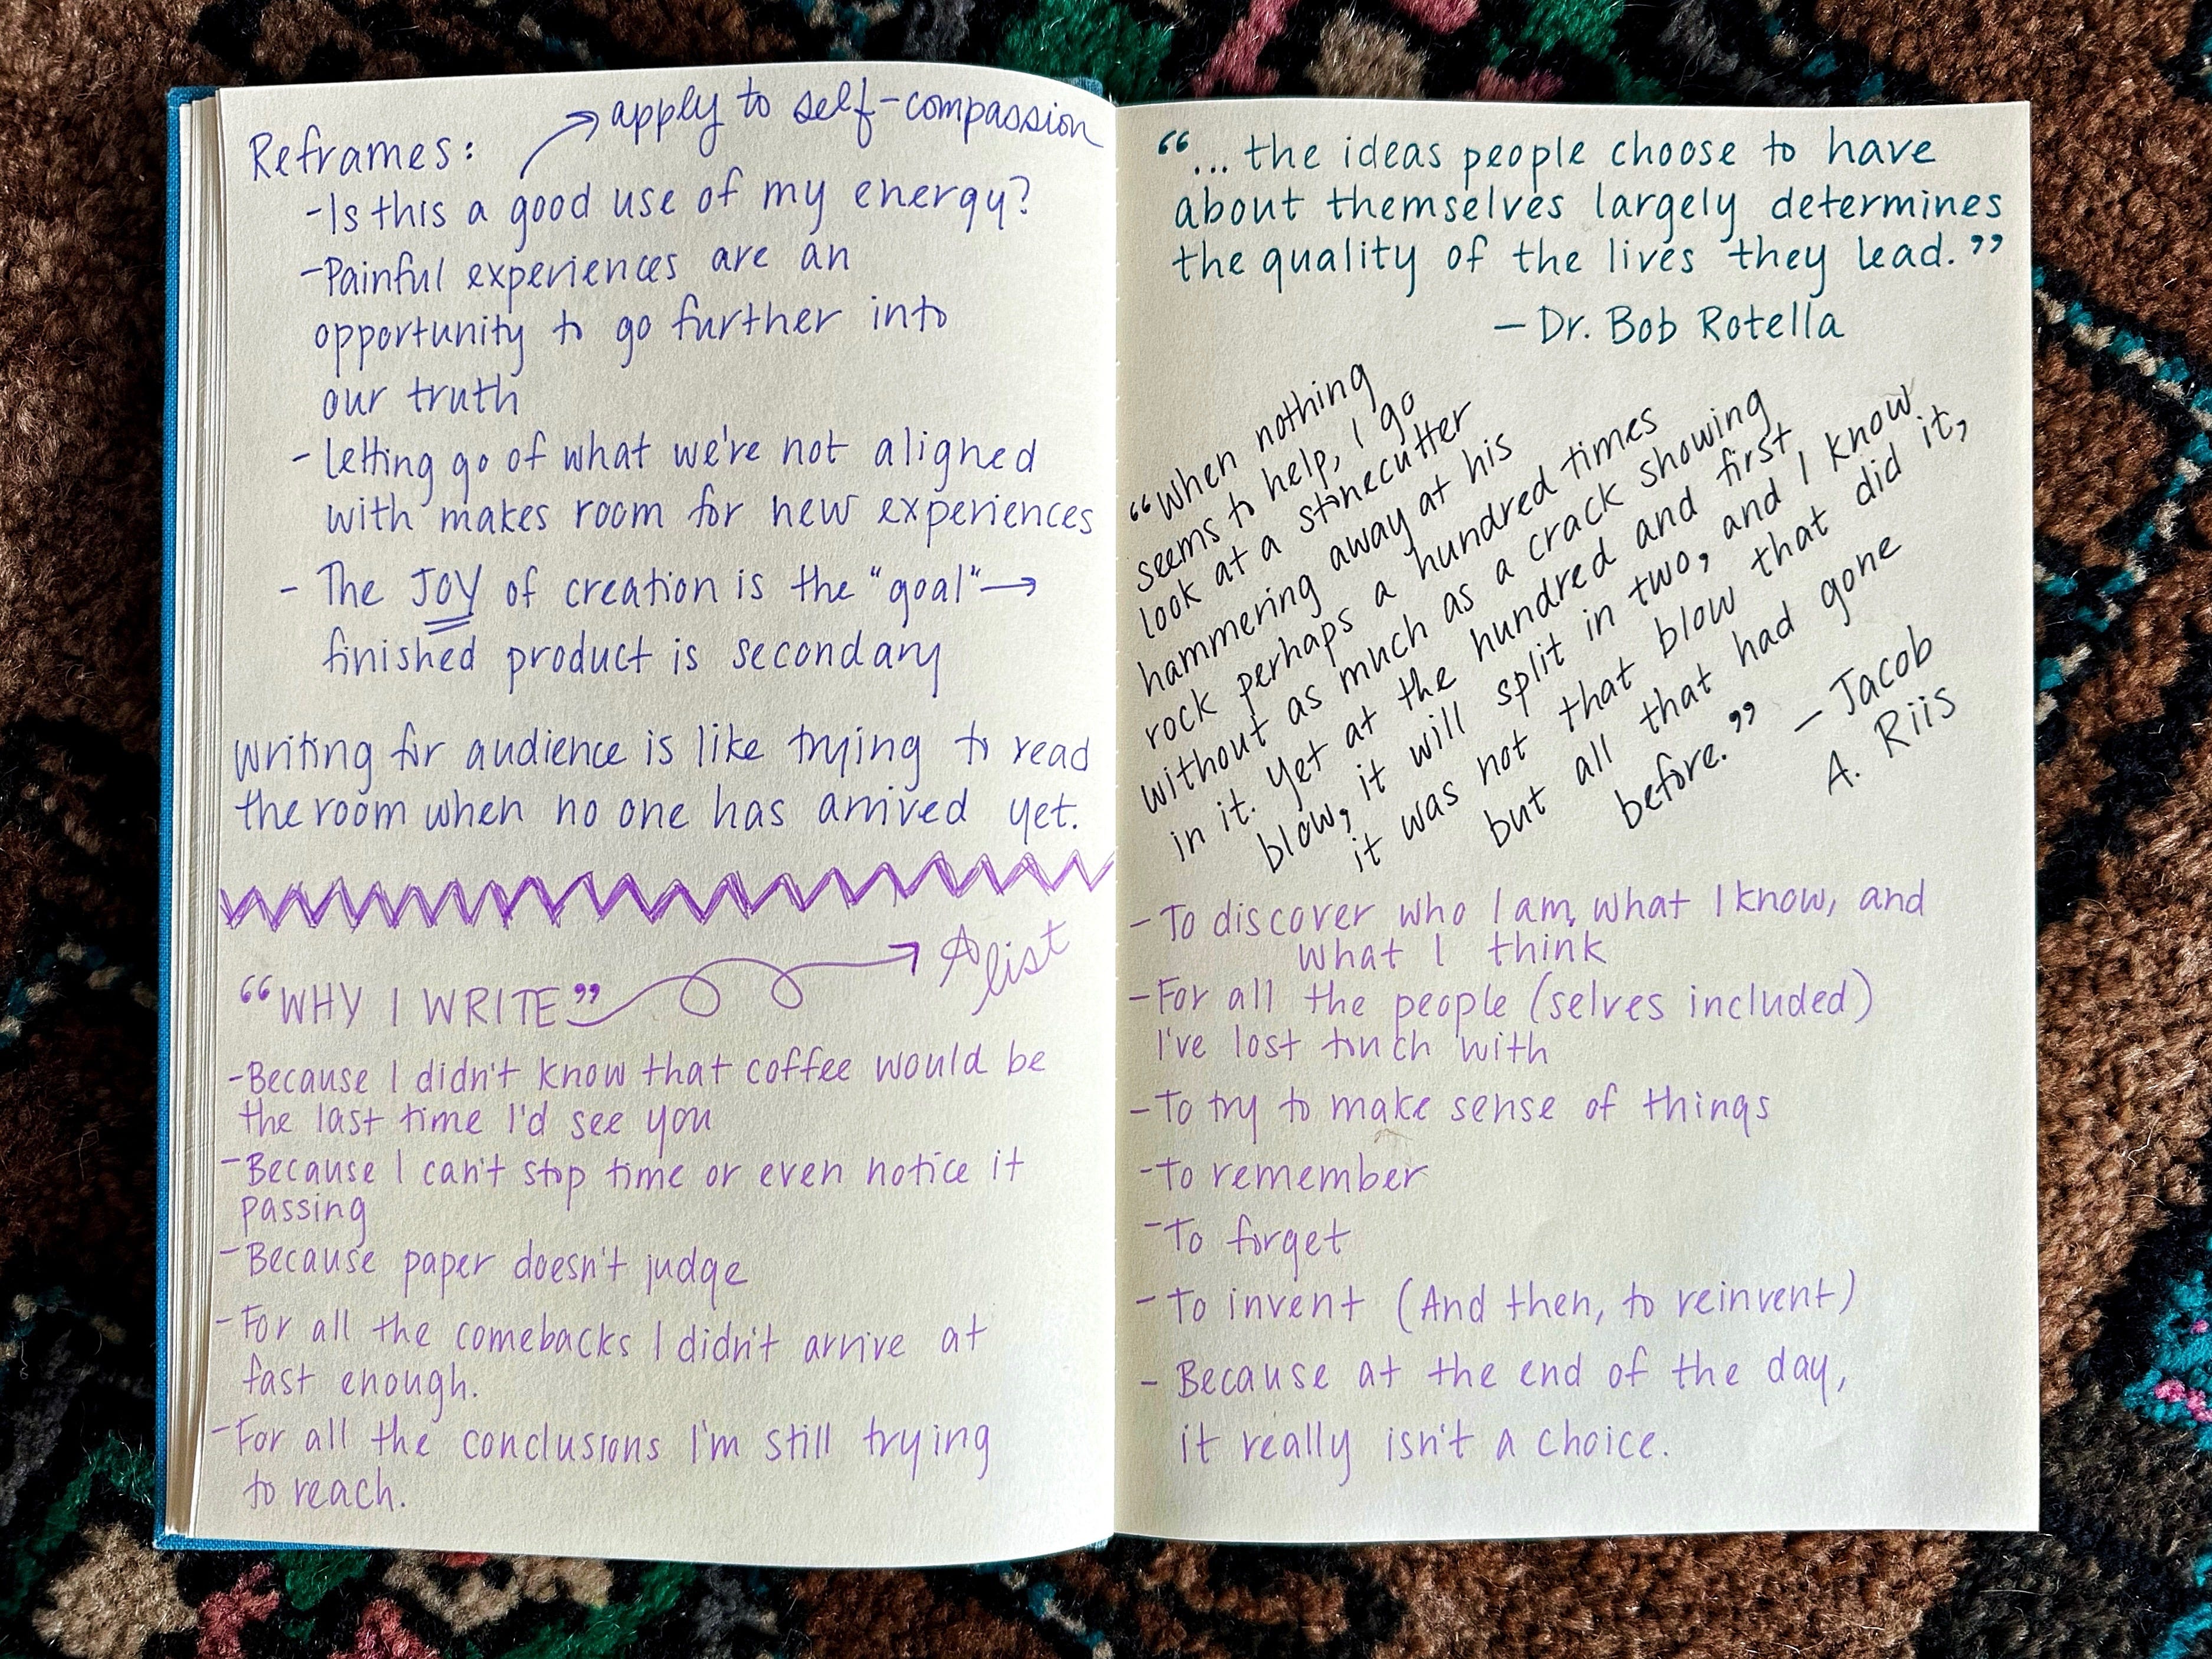 apply to self-compassion
Reframes:
-Is this a good use of my energy?
-Painful experiences are an
opportunity to go further into
our truth
- letting go of what we're not aligned
with makes room for new experiences
- The JOY of creation is the "goal"→
finished product is secondary
writing for audience is like trying to read
the room when no one has arrived yet.
"WHY I WRITE"
A list
-Because I didn't know that coffee would be
the last time I'd see you
-Because I can't stop time or even notice it
passing
-Because paper doesn't judge
-For all the comebacks I didn't arrive at
fast enough.
-For all the conclusions I'm still trying
to reach.
"... the ideas people choose to have
about themselves largely determines
the quality of the lives they lead."
—Dr. Bob Rotella
"When nothing
seems to help, I go
look at a stonecutter
hammering away at his
rock perhaps a hundred times
without as much as a crack showing
in it. Yet at the hundred and first
blow, it will split in two, and I know
it was not that blow that did it,
but all that had gone
before." — Jacob
A. Riis
-To discover who I am, what I know, and
what I think
-For all the people (selves included)
I've lost touch with
-To try to make sense of things
-To remember
-To forget
-To invent (And then, to reinvent)
- Because at the end of the day,
it really isn't a choice.